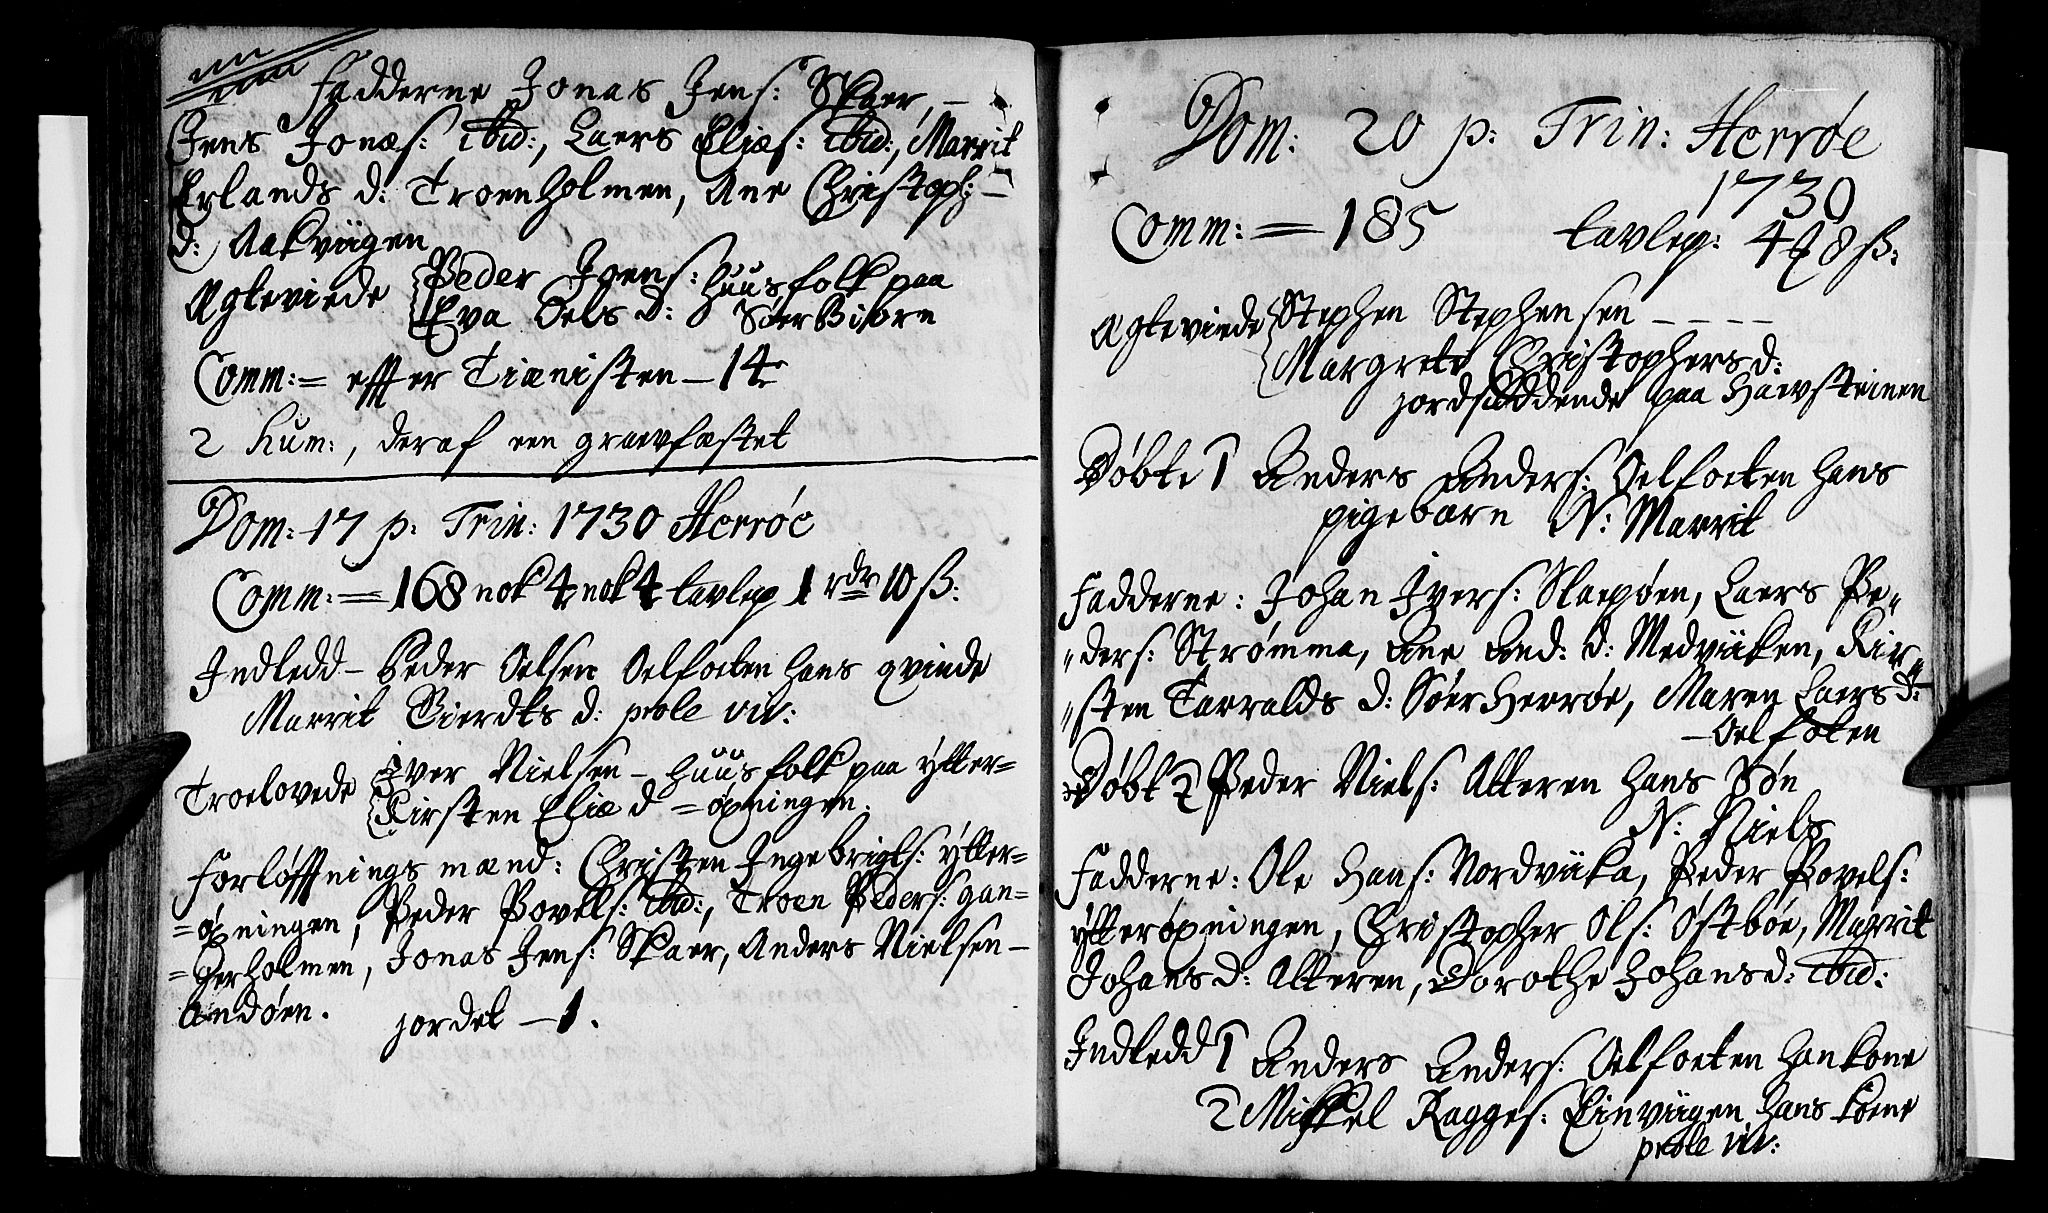 Fadderne Jonas Jens: Skaer, –
Jens Jonæs: ibid:, Laers Eliæs: ibid:, Marrit
Erlands d: Troenholmen, Ane Christoph: –
d: Aakviigen
Ægteviede Peder Joens: huusfolk paa
Eva Oels d: SøerBiørn
Comm: = effter Tiænisten – 14
2 hum:, deraf een graevfæstet
Dom: 17 p: Trin: 1730 Herrøe
Comm: = 168 nok 4 nok 4 tavlep 1 rdr 10 ß:
Indledd – Peder Oelsen Oelfoeten hans qvinde
Marrit Sierdts d: prole viv:
Troelovede Iver Nielsen – huusfolk paa ytter=
Kirsten Eliæ d =øpningen.
Forløfftnings mænd: Christen Ingebrigts: ytter=
=øpningen, Peder Povels: ibid:, Troen Peders: gan=
=gerholmen, Jonas Jens: Skaer, Anders Nielsen –
Andøen. jordet – 1.
Dom: 20 p: Trin: Herrøe
1730
Comm: = 185 tavlep: 4 ℳ 8 ß:
Ægteviede Stephen Stephensen – – – –
Margrete Christophers d:
jordsiddende paa Haevsteinen
Døbte 1 Anders Anders: Oelfoeten hans
pigebarn N: Marrit
Fadderne: Johan Ivers: Slaepøen, Laers Pe„
„ders: Strømma, Ane And: d: Medviiken, Kir„
„sten Tarralds d: SøerHerrøe, Maren Laers d:
– Oelfoten
Døbt 2 Peder Niels: Alteren hans Søn
N: Niels
Fadderne: Ole Hans: Nordviika, Peder Povels:
ytterøpningen, Christopher Ols: Østbøe, Marrit
Johans d: Alteren, Dorothe Johans d: ibid:
Indledd 1 Anders Anders: Oelfoeten han kone
2 Mikkel Ragges: Einviigen hans koene
prole viv: